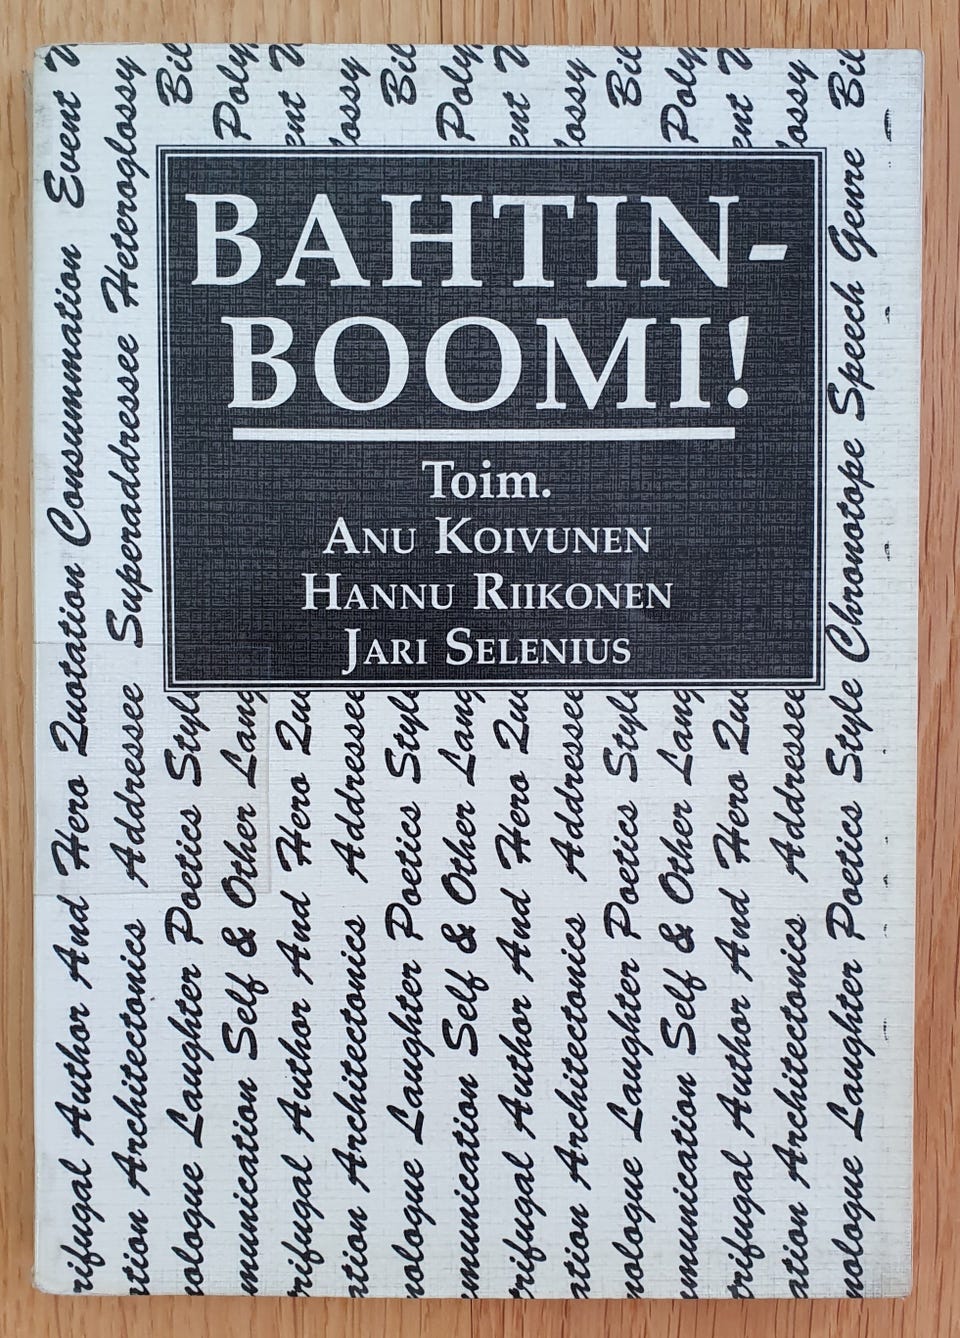 BAHTIN-
BOOMI!
Toim.
ANU KOIVUNEN
HANNU RIIKONEN
JARI SELENIUS
rifugal Author And Hero Quotation Consummation Event
tion Architectonics Addressee Superaddressee Heteroglossy
ologue Laughter Poetics Style Bil
munication Self & Other Lang Poly
trifugal Author And Hero Quo ent
ation Architectonics Addressee lossy
nologue Laughter Poetics Style Bil
munication Self & Other Lang Poly
rifugal Author And Hero Quo ent
ation Architectonics Addressee lossy
nologue Laughter Poetics Style Bil
munication Self & Other Lang Poly
trifugal Author And Hero Quo ent
ation Architectonics Addressee lossy
nologue Laughter Poetics Style Chronotope Speech Genre Bil